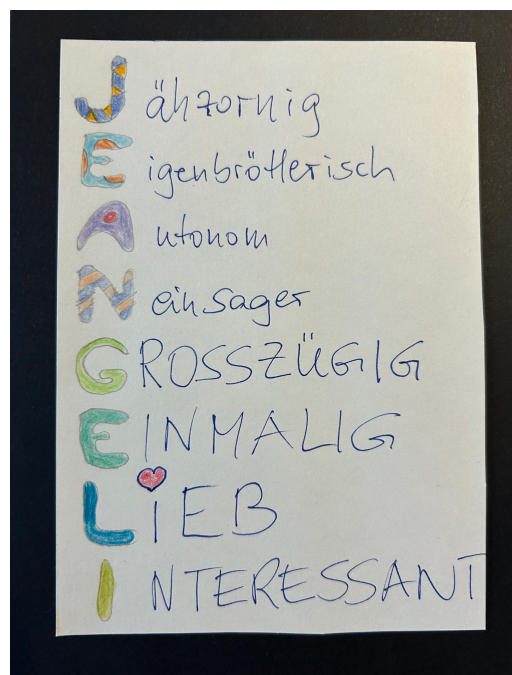 Jähzornig
Eigenbrötlerisch
Autonom
Neinsager
GROSSZÜGIG
EINMALIG
LiEB
INTERESSANT